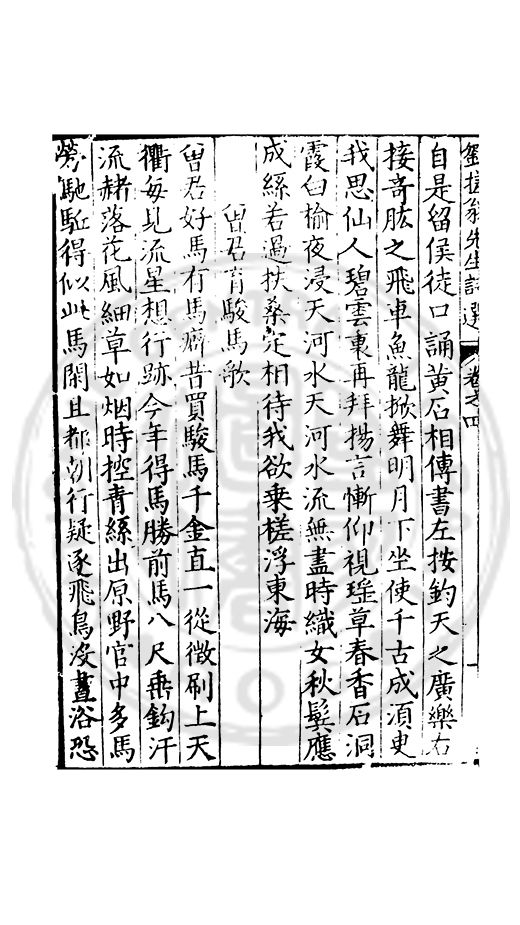 劉拙翁先生詩選 卷之四
自是留侯徒口誦黃石相傳書左按鈞天之廣樂右
接奇肱之飛車魚龍掀舞明月下坐使千古成須臾
我思仙人碧雲裏再拜揚言慚仰視瑤草春香石洞
霞白榆夜浸天河水天河水流無盡時織女秋鬂應
成絲若過扶桑定相待我欲乗槎浮東海
曽君有駿馬歌
曽君好馬有馬癖昔買駿馬千金直一從徴刷上天
衢每見流星想行跡今年得馬勝前馬八尺乗鈎汗
流赭落花風細草如烟時控青絲出原野官中多馬
勞馳駈得似此馬閑且都朝行疑逐飛鳥沒晝浴恐